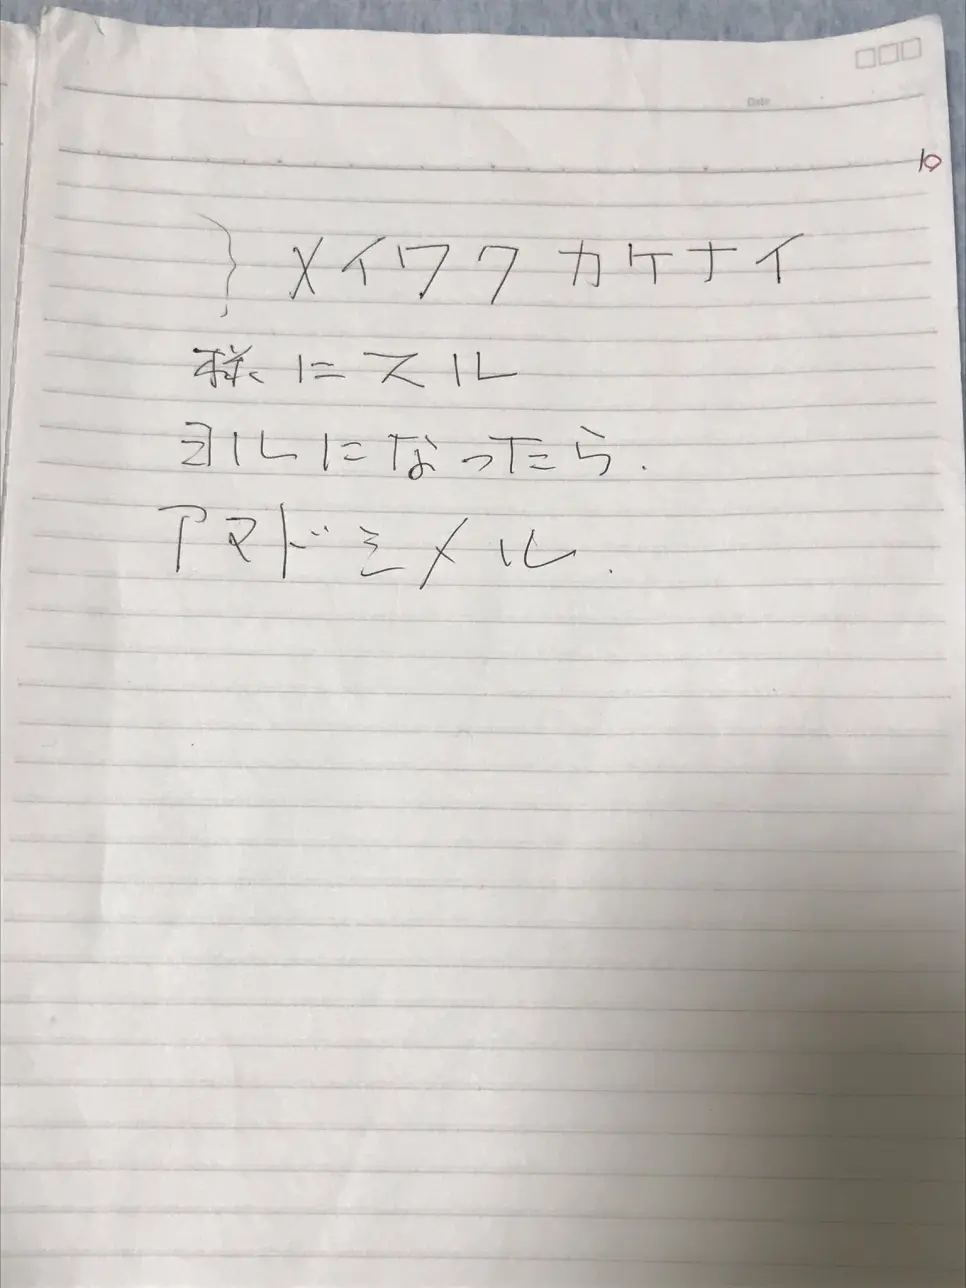 Date
10
} メイワク カケナイ
様にスル
ヨルになったら.
アマドミメル.